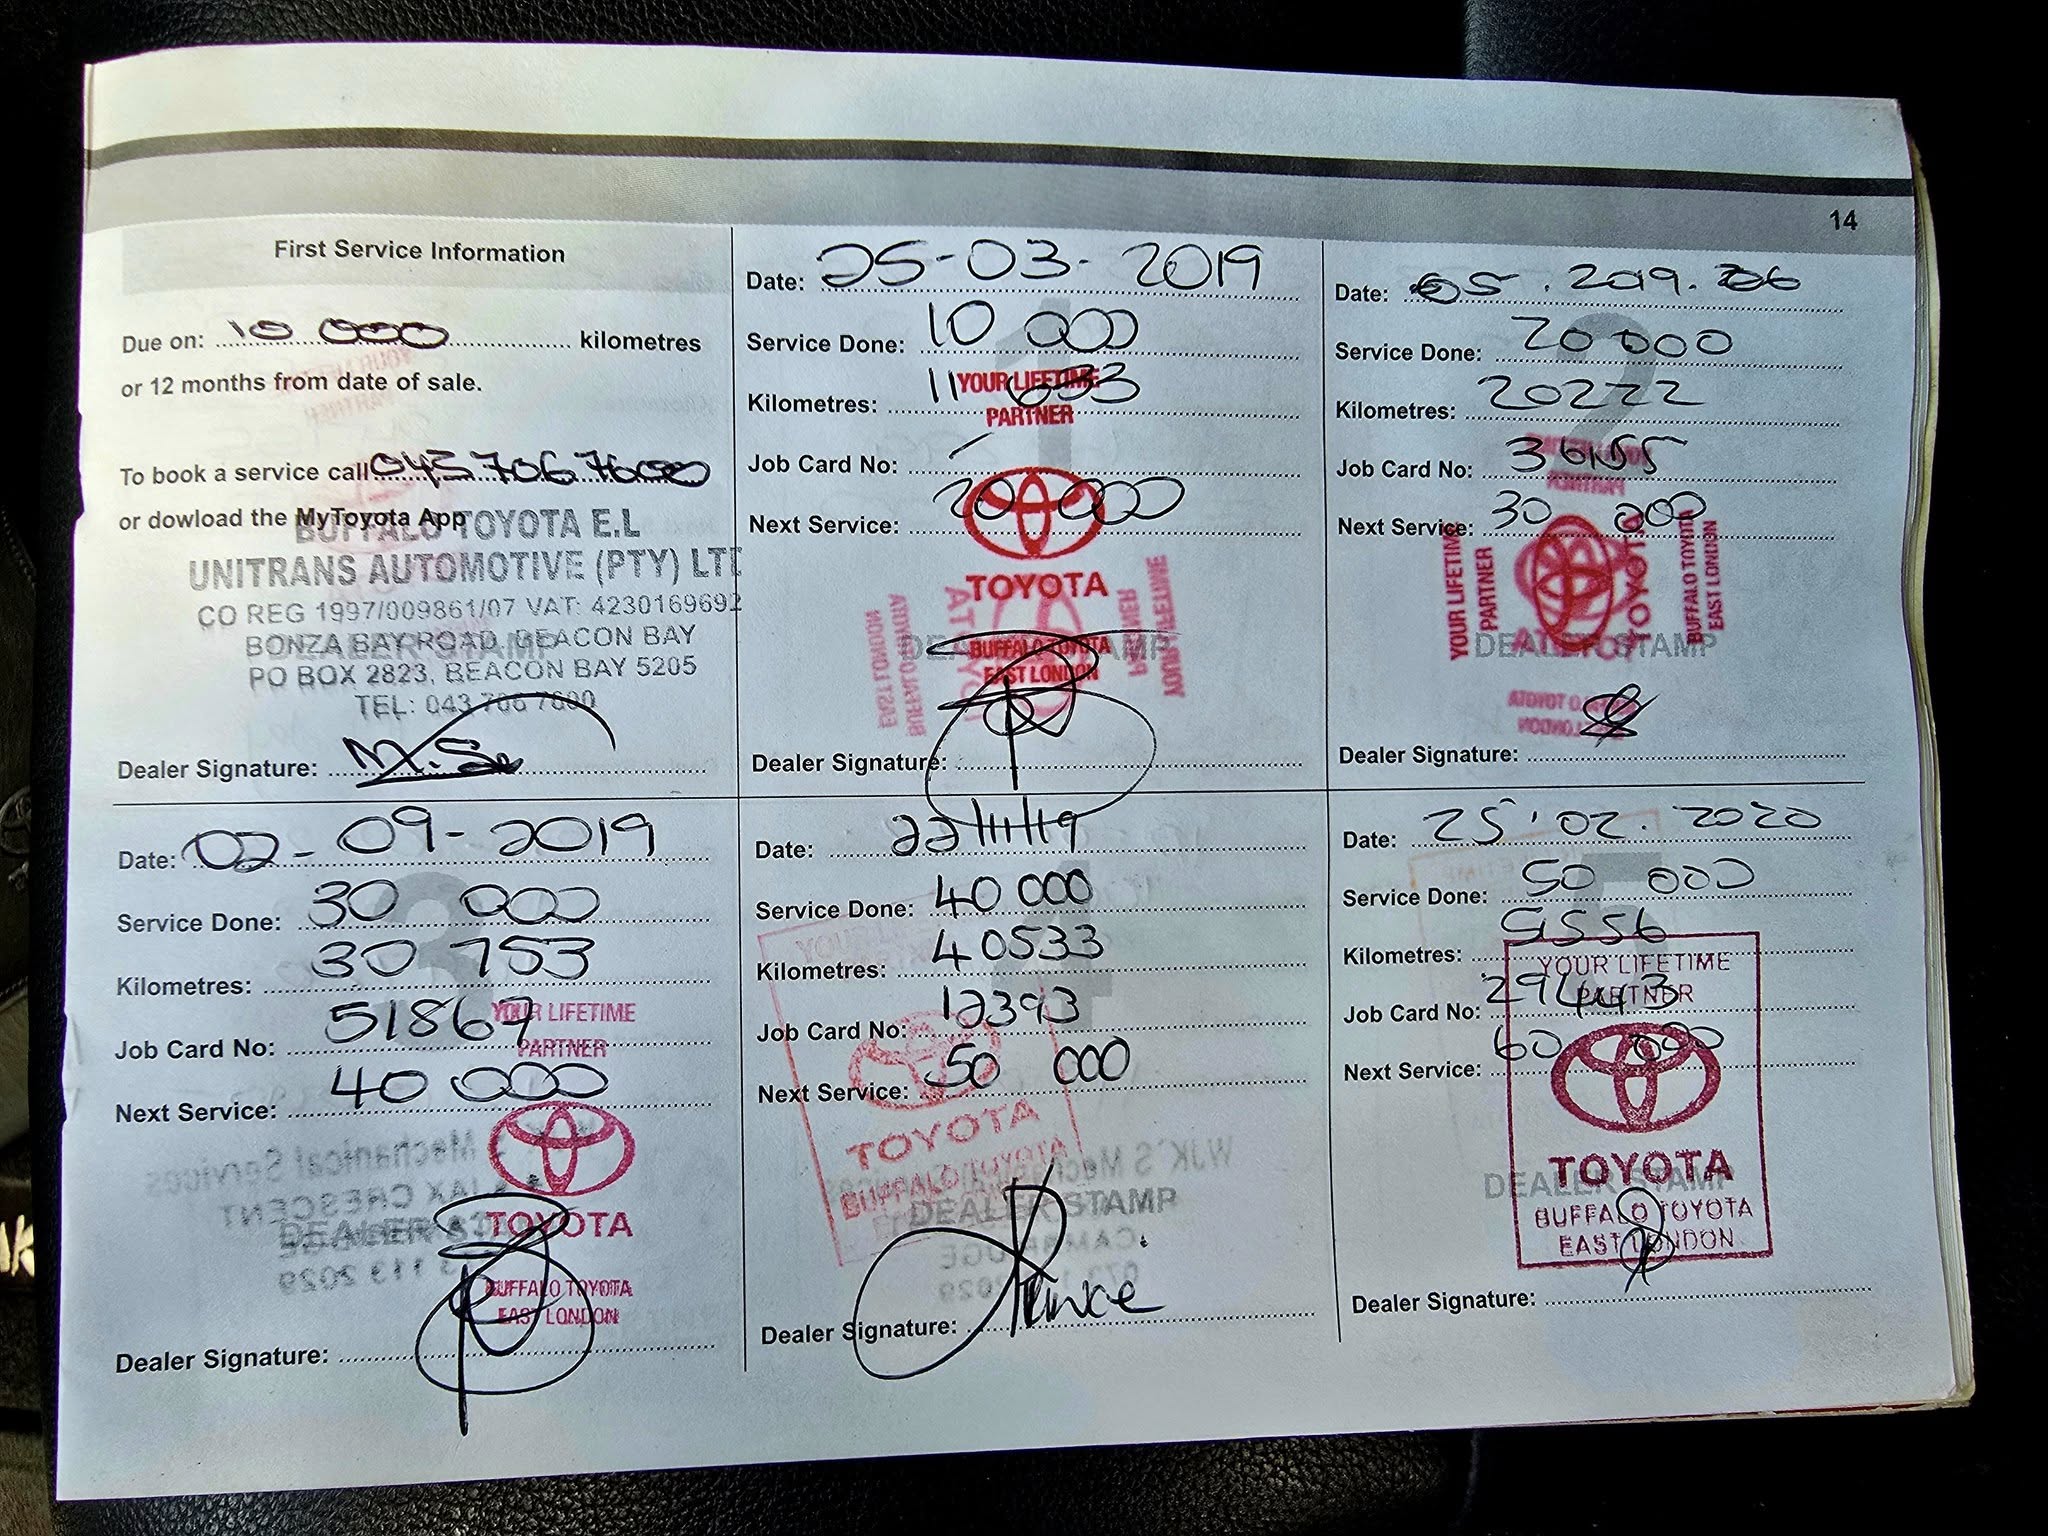 14
First Service Information
Due on: 10 000 kilometres
or 12 months from date of sale.
To book a service call 043 706 7600
or dowload the MyToyota App
BUFFALO TOYOTA E.L
UNITRANS AUTOMOTIVE (PTY) LTD
CO REG 1997/009861/07 VAT: 4230169692
BONZA BAY ROAD, BEACON BAY
PO BOX 2823, BEACON BAY 5205
TEL: 043 706 7600
DEALER STAMP
Dealer Signature:
1
Date: 25-03-2019
Service Done: 10 000
Kilometres: 11 633
YOUR LIFETIME
PARTNER
Job Card No:
Next Service: 20 000
TOYOTA
DEALER STAMP
BUFFALO TOYOTA
EAST LONDON
YOUR LIFETIME
PARTNER
TOYOTA
BUFFALO TOYOTA
EAST LONDON
Dealer Signature:
2
Date: 05.2019.06
Service Done: 20 000
Kilometres: 20222
Job Card No: 36155
Next Service: 30 000
YOUR LIFETIME
PARTNER
TOYOTA
BUFFALO TOYOTA
EAST LONDON
DEALER STAMP
Dealer Signature:
3
Date: 02-09-2019
Service Done: 30 000
Kilometres: 30 753
Job Card No: 51867
YOUR LIFETIME
PARTNER
Next Service: 40 000
TOYOTA
DEALER STAMP
BUFFALO TOYOTA
EAST LONDON
Dealer Signature:
4
Date: 22/11/19
Service Done: 40 000
Kilometres: 40533
Job Card No: 12393
Next Service: 50 000
TOYOTA
BUFFALO TOYOTA
DEALER STAMP
Dealer Signature: Prince
5
Date: 25.02.2020
Service Done: 50 000
Kilometres: 51556
YOUR LIFETIME
PARTNER
Job Card No: 294443
Next Service: 60 000
TOYOTA
DEALER STAMP
BUFFALO TOYOTA
EAST LONDON
Dealer Signature: